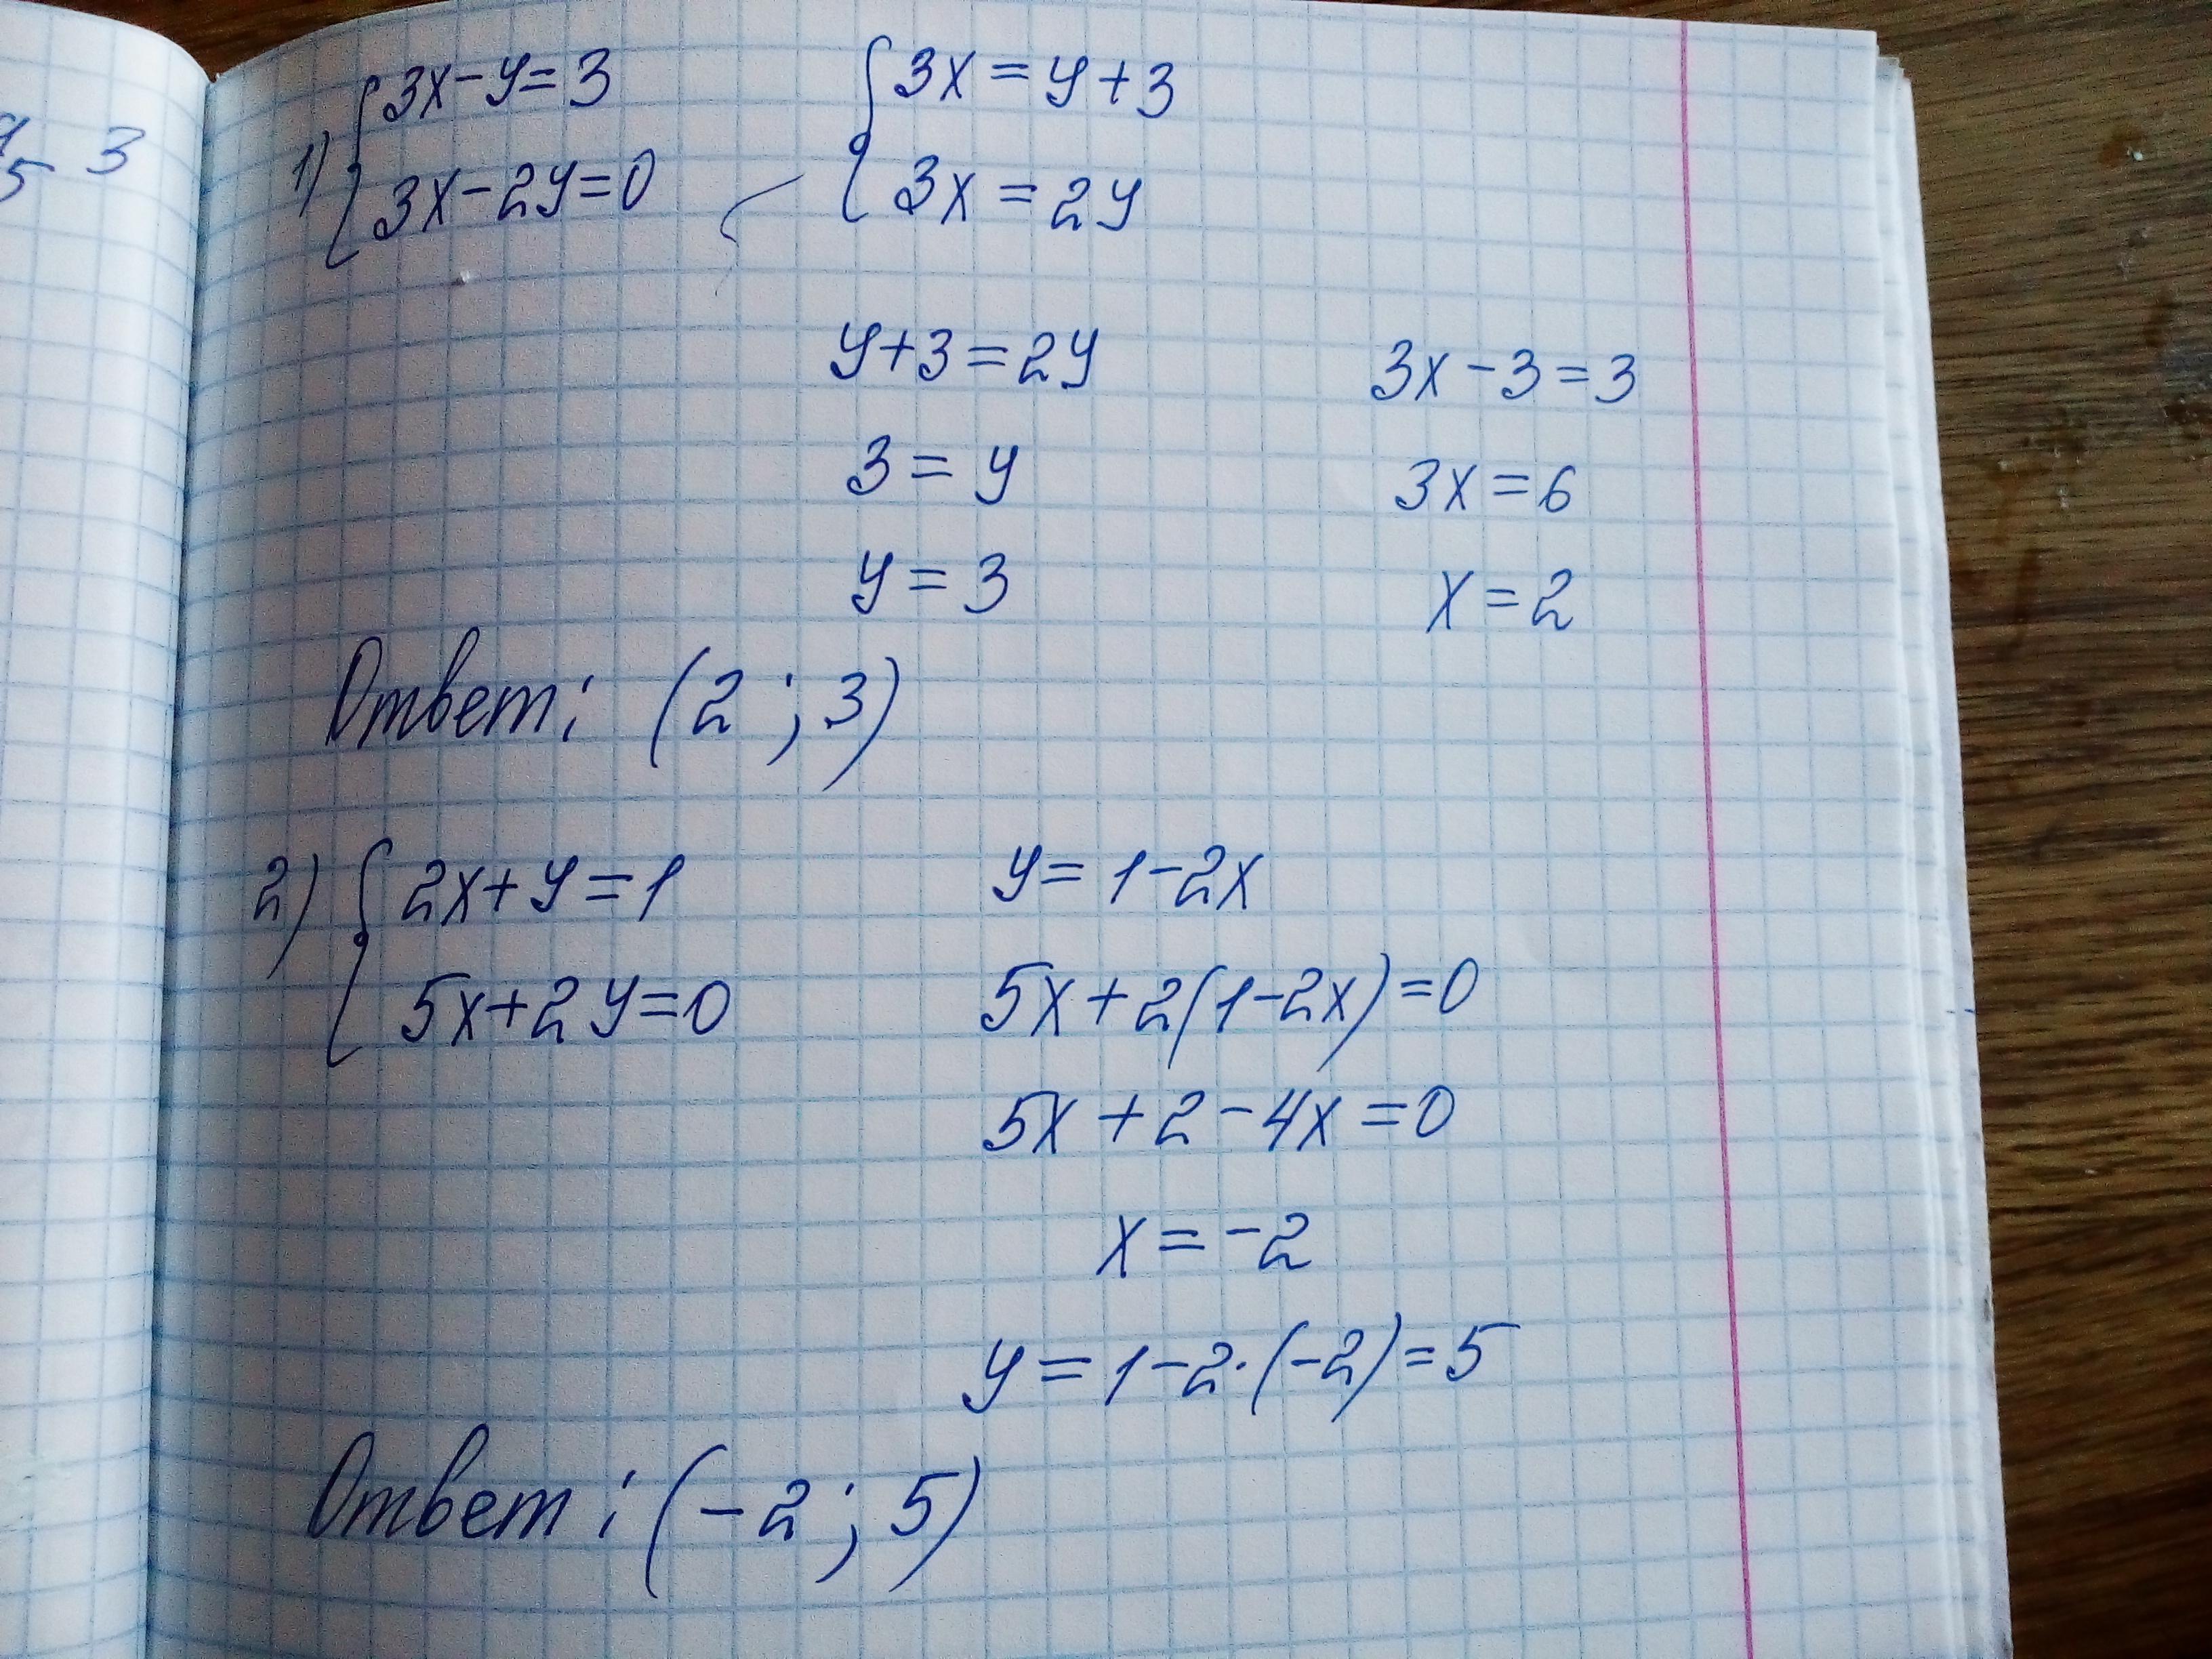 3
5
1) { 3x-y=3
3x-2y=0
{ 3x=y+3
3x=2y
y+3=2y
3=y
y=3
3x-3=3
3x=6
x=2
Ответ: (2;3)
2) { 2x+y=1
5x+2y=0
y=1-2x
5x+2(1-2x)=0
5x+2-4x=0
x=-2
y=1-2·(-2)=5
Ответ: (-2;5)